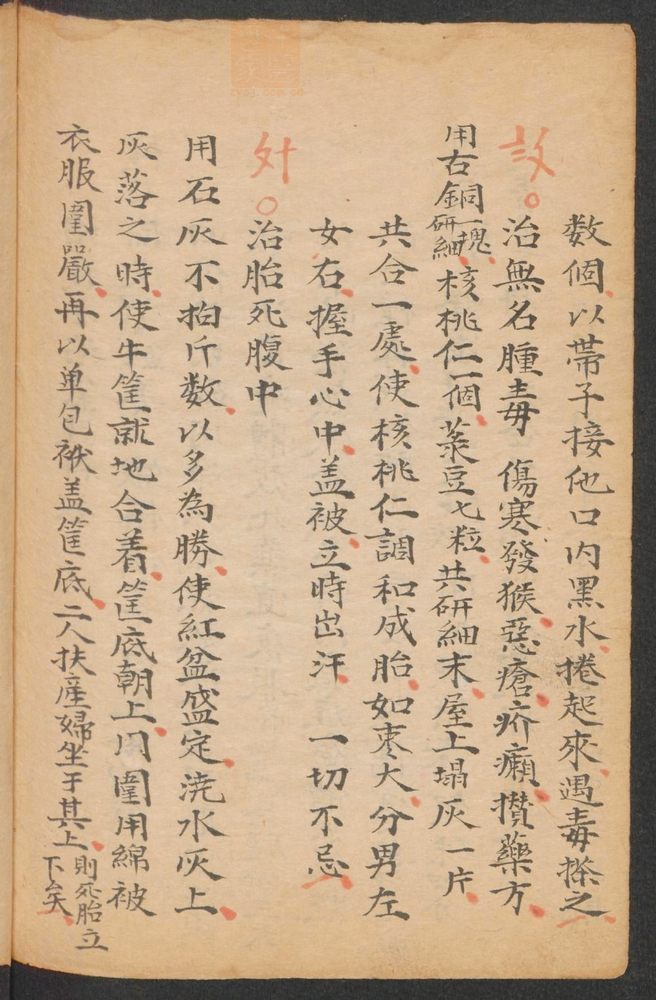 数個、以帶子接他口内黑水、捲起來、遇毒搽之、
治無名腫毒 傷寒發猴、惡瘡疥癩、攢藥方、
用古銅一塊研細、核桃仁一個、菉豆七粒、共研細末、屋上塌灰一片、
共合一處、使核桃仁調和成胎、如棗大、分男左
女右、握手心中、盖被、立時出汗、 一切不忌、
外○治胎死腹中
用石灰不拍斤数、以多為勝、使紅盆盛定、浇水灰上、
灰落之時、使牛筐就地合着、筐底朝上、周圍用綿被
衣服圍嚴、再以单包袱盖筐底、二人扶產婦坐于其上、則死胎立下矣、